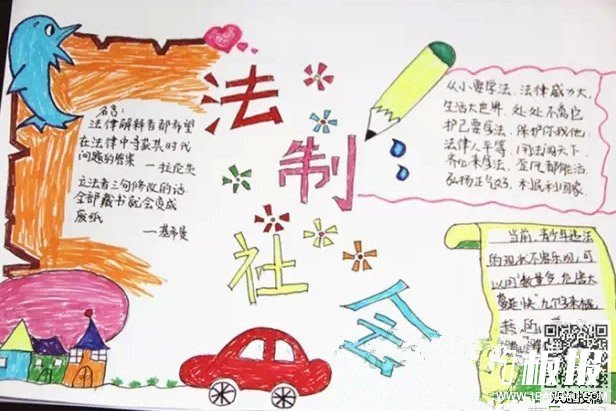 法
制
社
会
名言:
法律解释者都希望
在法律中寻获其时代
问题的答案
—拉伦茨
立法者三句修改的话
全部藏书就会变成
废纸
—基希曼
从小要学法,法律威力大,
生活大世界,处处不离它
护己要学法,保护你我他,
法律人平等,
齐心来学法,歪风都能治
弘扬正与好,利民利国家.
当前,青少年违法
的现状不容乐观,可
以用"数量多,危害大
蔓延快"九个字来概